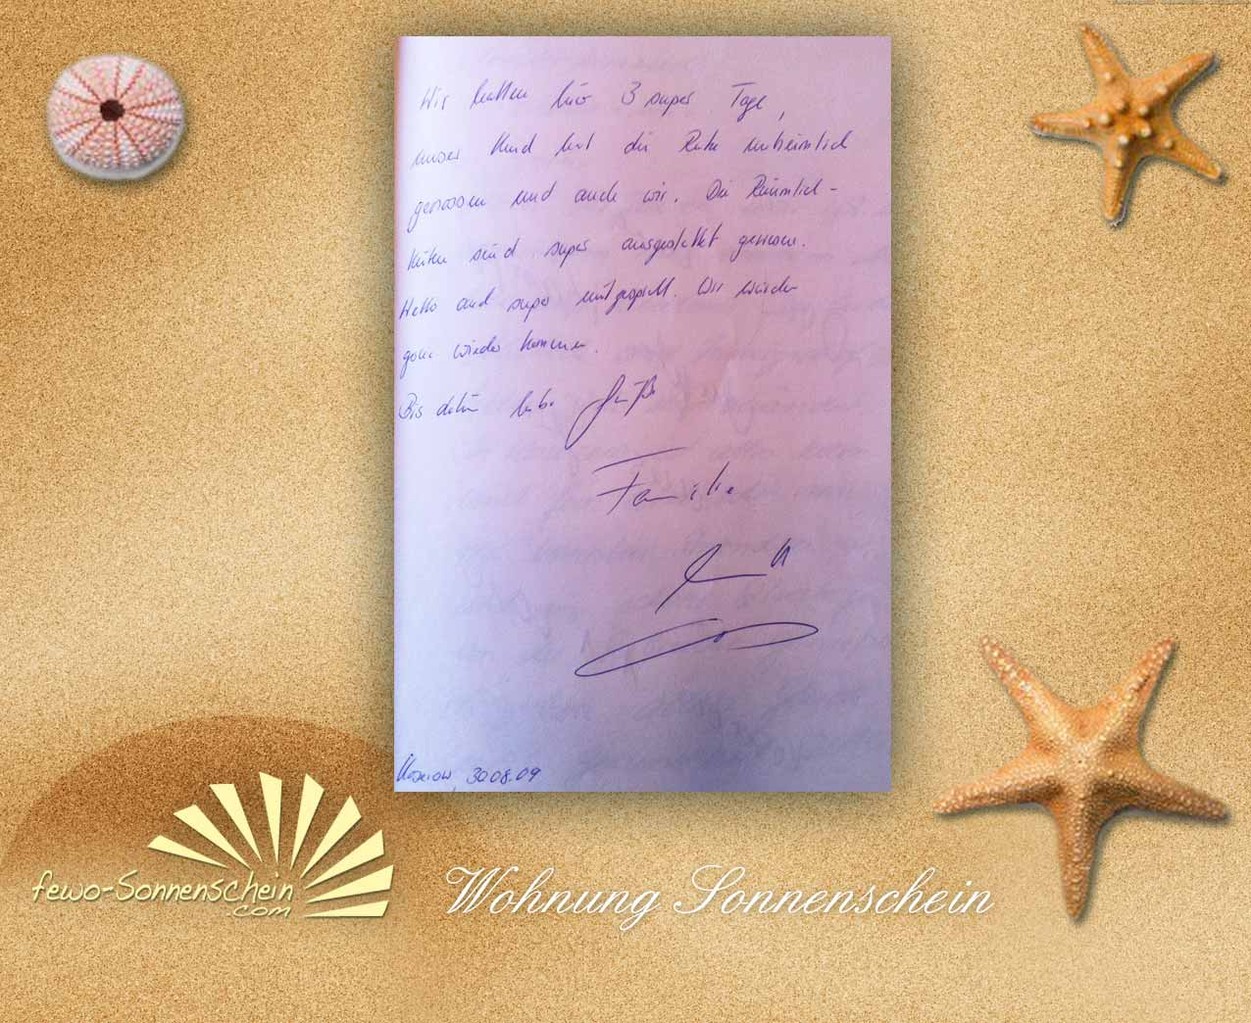 Wir hatten hier 3 super Tage,
unser Kind hat die Ruhe unheimlich
genossen und auch wir. Die Räumlich-
keiten sind super ausgestattet gewesen.
und super mitgespielt. Wir würden
gern wieder kommen.
Bis dahin liebe Grüße
Familie
Koserow, 30.08.09
fewo-Sonnenschein
.com
Wohnung Sonnenschein